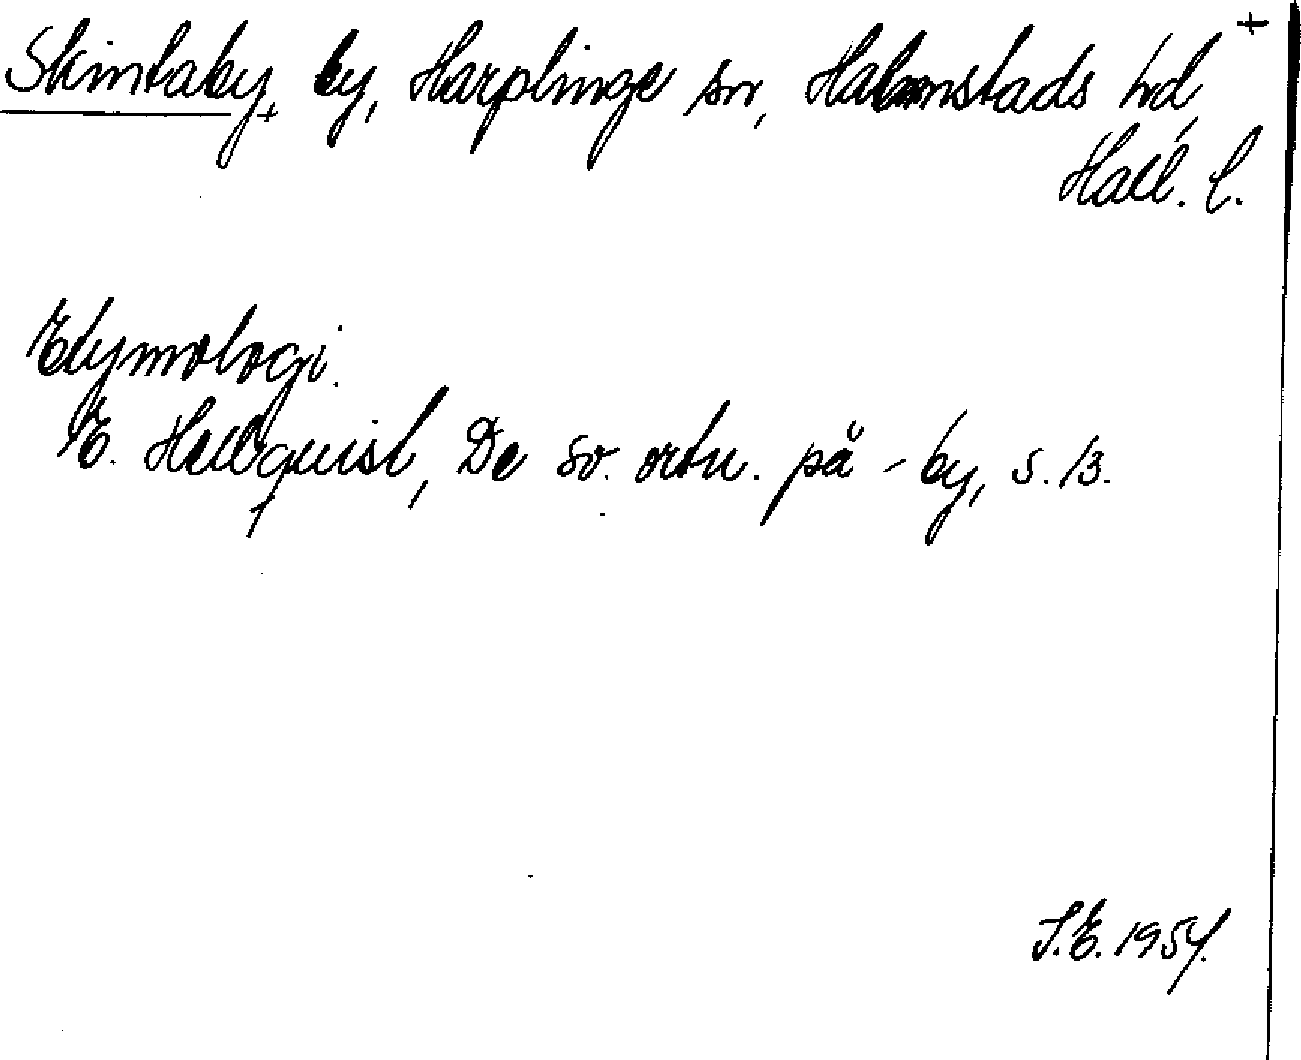 Skintaby, by, Harplinge sn, Halmstads hd, +
Hall. l.
Etymologi.
E. Hellquist, De sv. ortn. på -by, s. 13.
S.E. 1954.